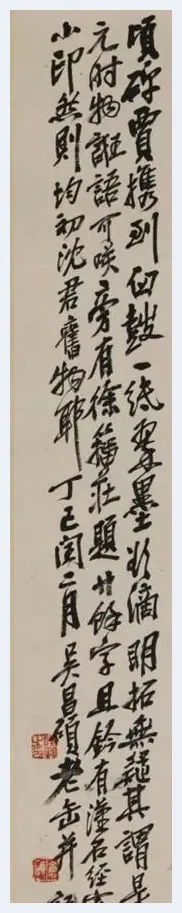 頃碑賈攜到石鼓一紙翠墨欲滴明拓無疑其謂是
元时物誑語可咲旁有徐籀莊題廿餘字且鈐有漢石經室
小印然則均初沈君舊物耶丁巳閏二月吴昌碩老缶并記